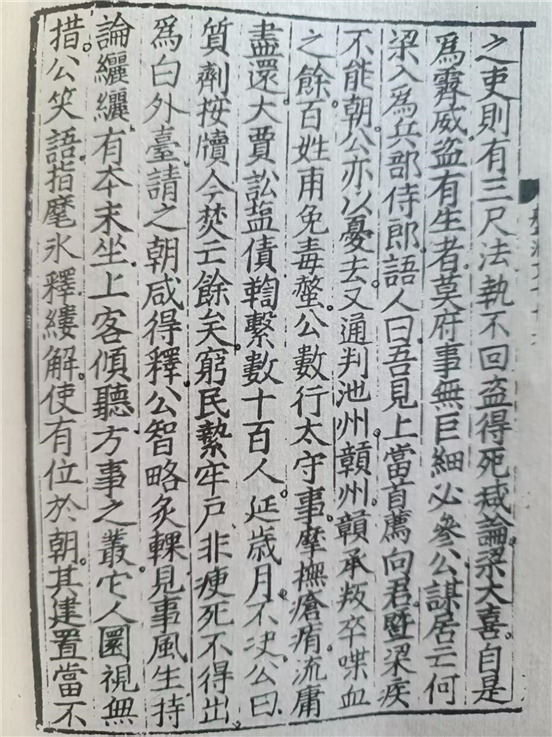 之吏則有三尺法執不回盗得死减論梁大喜自是
爲霽威盗有生者莫府事無巨細必參公謀居亡何
梁入爲兵部侍郎語人曰吾見上當首薦向君暨梁疾
不能朝公亦以憂去又通判池州贛州贛承叛卒喋血
之餘百姓甫免毒螫公數行太守事摩撫瘡痏流庸
盡還大賈訟盐債鞫繫數十百人延歳月不决公曰
質劑按牘今焚亡餘矣窮民縶牢戸非瘐死不得出
爲白外臺請之朝咸得釋公智略炙輠見事風生持
論纚纚有本末坐上客傾聽方事之叢它人圜視無
措公笑語指麾氷釋縷解使有位於朝其建置當不